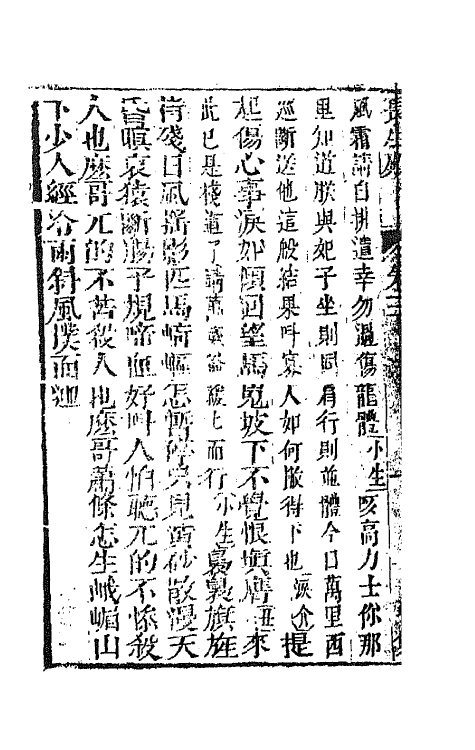 長生殿 卷三
風霜請自排遣幸勿過傷龍體小生咳高力士你那
里知道朕與妃子坐則同肩行則並體今日萬里西
巡斷送他這般結果呌寡人如何撇得下也淚介提
起傷心事淚如傾回望馬嵬坡下不覺恨填膺丑來
此已是棧道了請萬歲爺緩上而行小生裊裊旗旌
背殘日風搖影匹馬崎嶇怎暫停只見黃砂散漫天
昏暝哀猿斷腸子規啼血好呌人怕聽兀的不慘殺
人也麽哥兀的不苦殺人也麽哥蕭條怎生峨嵋山
下少人經冷雨斜風撲面迎